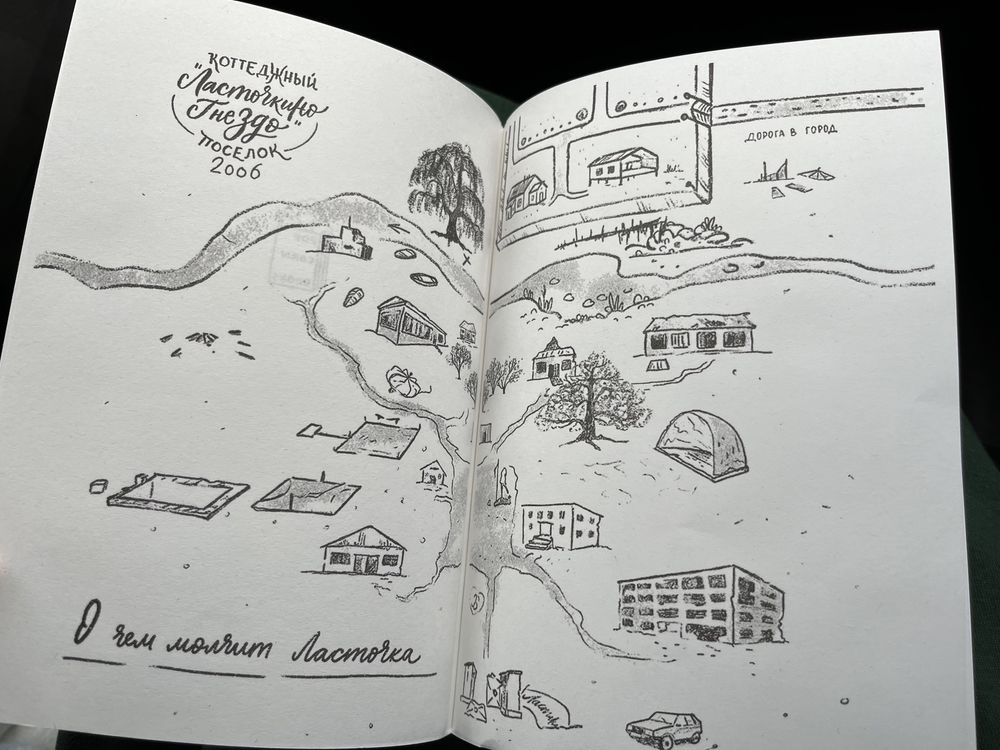 КОТТЕДЖНЫЙ
"Ласточкино
Гнездо"
ПОСЕЛОК
2006
ДОРОГА В ГОРОД
О чем молчит Ласточка